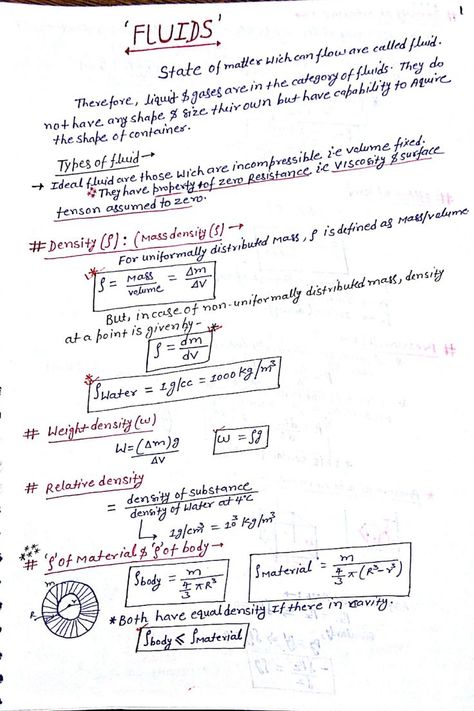 1
'FLUIDS'
State of matter wich can flow are called fluid.
Therefore, liquid & gases are in the category of fluids. They do
not have any shape & size their own but have capability to Aquire
the shape of container.
Types of fluid →
→ Ideal fluid are those wich are incompressible i.e volume fixed.
* They have property of zero Resistance i.e Viscosity & surface
tenson assumed to zero.
# Density (ρ) : (Mass density (ρ) →
For uniformly distributed mass, ρ is defined as mass/volume
ρ = mass/volume = Δm/ΔV
But, in case of non-uniformly distributed mass, density
at a point is given by -
ρ = dm/dv
ρwater = 1g/cc = 1000 kg/m³
# Weight density (w)
W = (Δm)g/ΔV   w = ρg
# Relative density
= density of substance/density of water at 4°C
↳ 1g/cm³ = 10³ kg/m³
# 'ρ' of Material & 'ρ' of body →
ρbody = m/(4/3 πR³)   ρmaterial = m/(4/3 π(R³-r³))
m
R
r
* Both have equal density If there in cavity.
ρbody ≤ ρmaterial